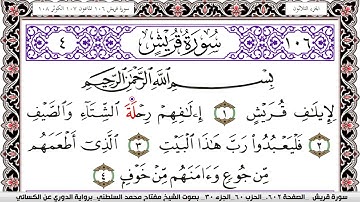 سورة قريش ١٠٦ الماعون ١٠٧ الكوثر ١٠٨ الجزء الثلاثون
١٠٦ سُورَةُ قُرَيْشٍ ٤
بِسْمِ اللَّهِ الرَّحْمَٰنِ الرَّحِيمِ
لِإِيلَٰفِ قُرَيْشٍ ١ إِۦلَٰفِهِمْ رِحْلَةَ الشِّتَآءِ وَالصَّيْفِ
٢ فَلْيَعْبُدُوا۟ رَبَّ هَٰذَا الْبَيْتِ ٣ الَّذِىٓ أَطْعَمَهُم
مِّن جُوعٍ وَءَامَنَهُم مِّنْ خَوْفٍۭ ٤
سورة قريش الصفحة ٦٠٢ الحزب ٦٠ الجزء ٣٠ بصوت الشيخ مفتاح محمد السلطني برواية الدوري عن الكسائي